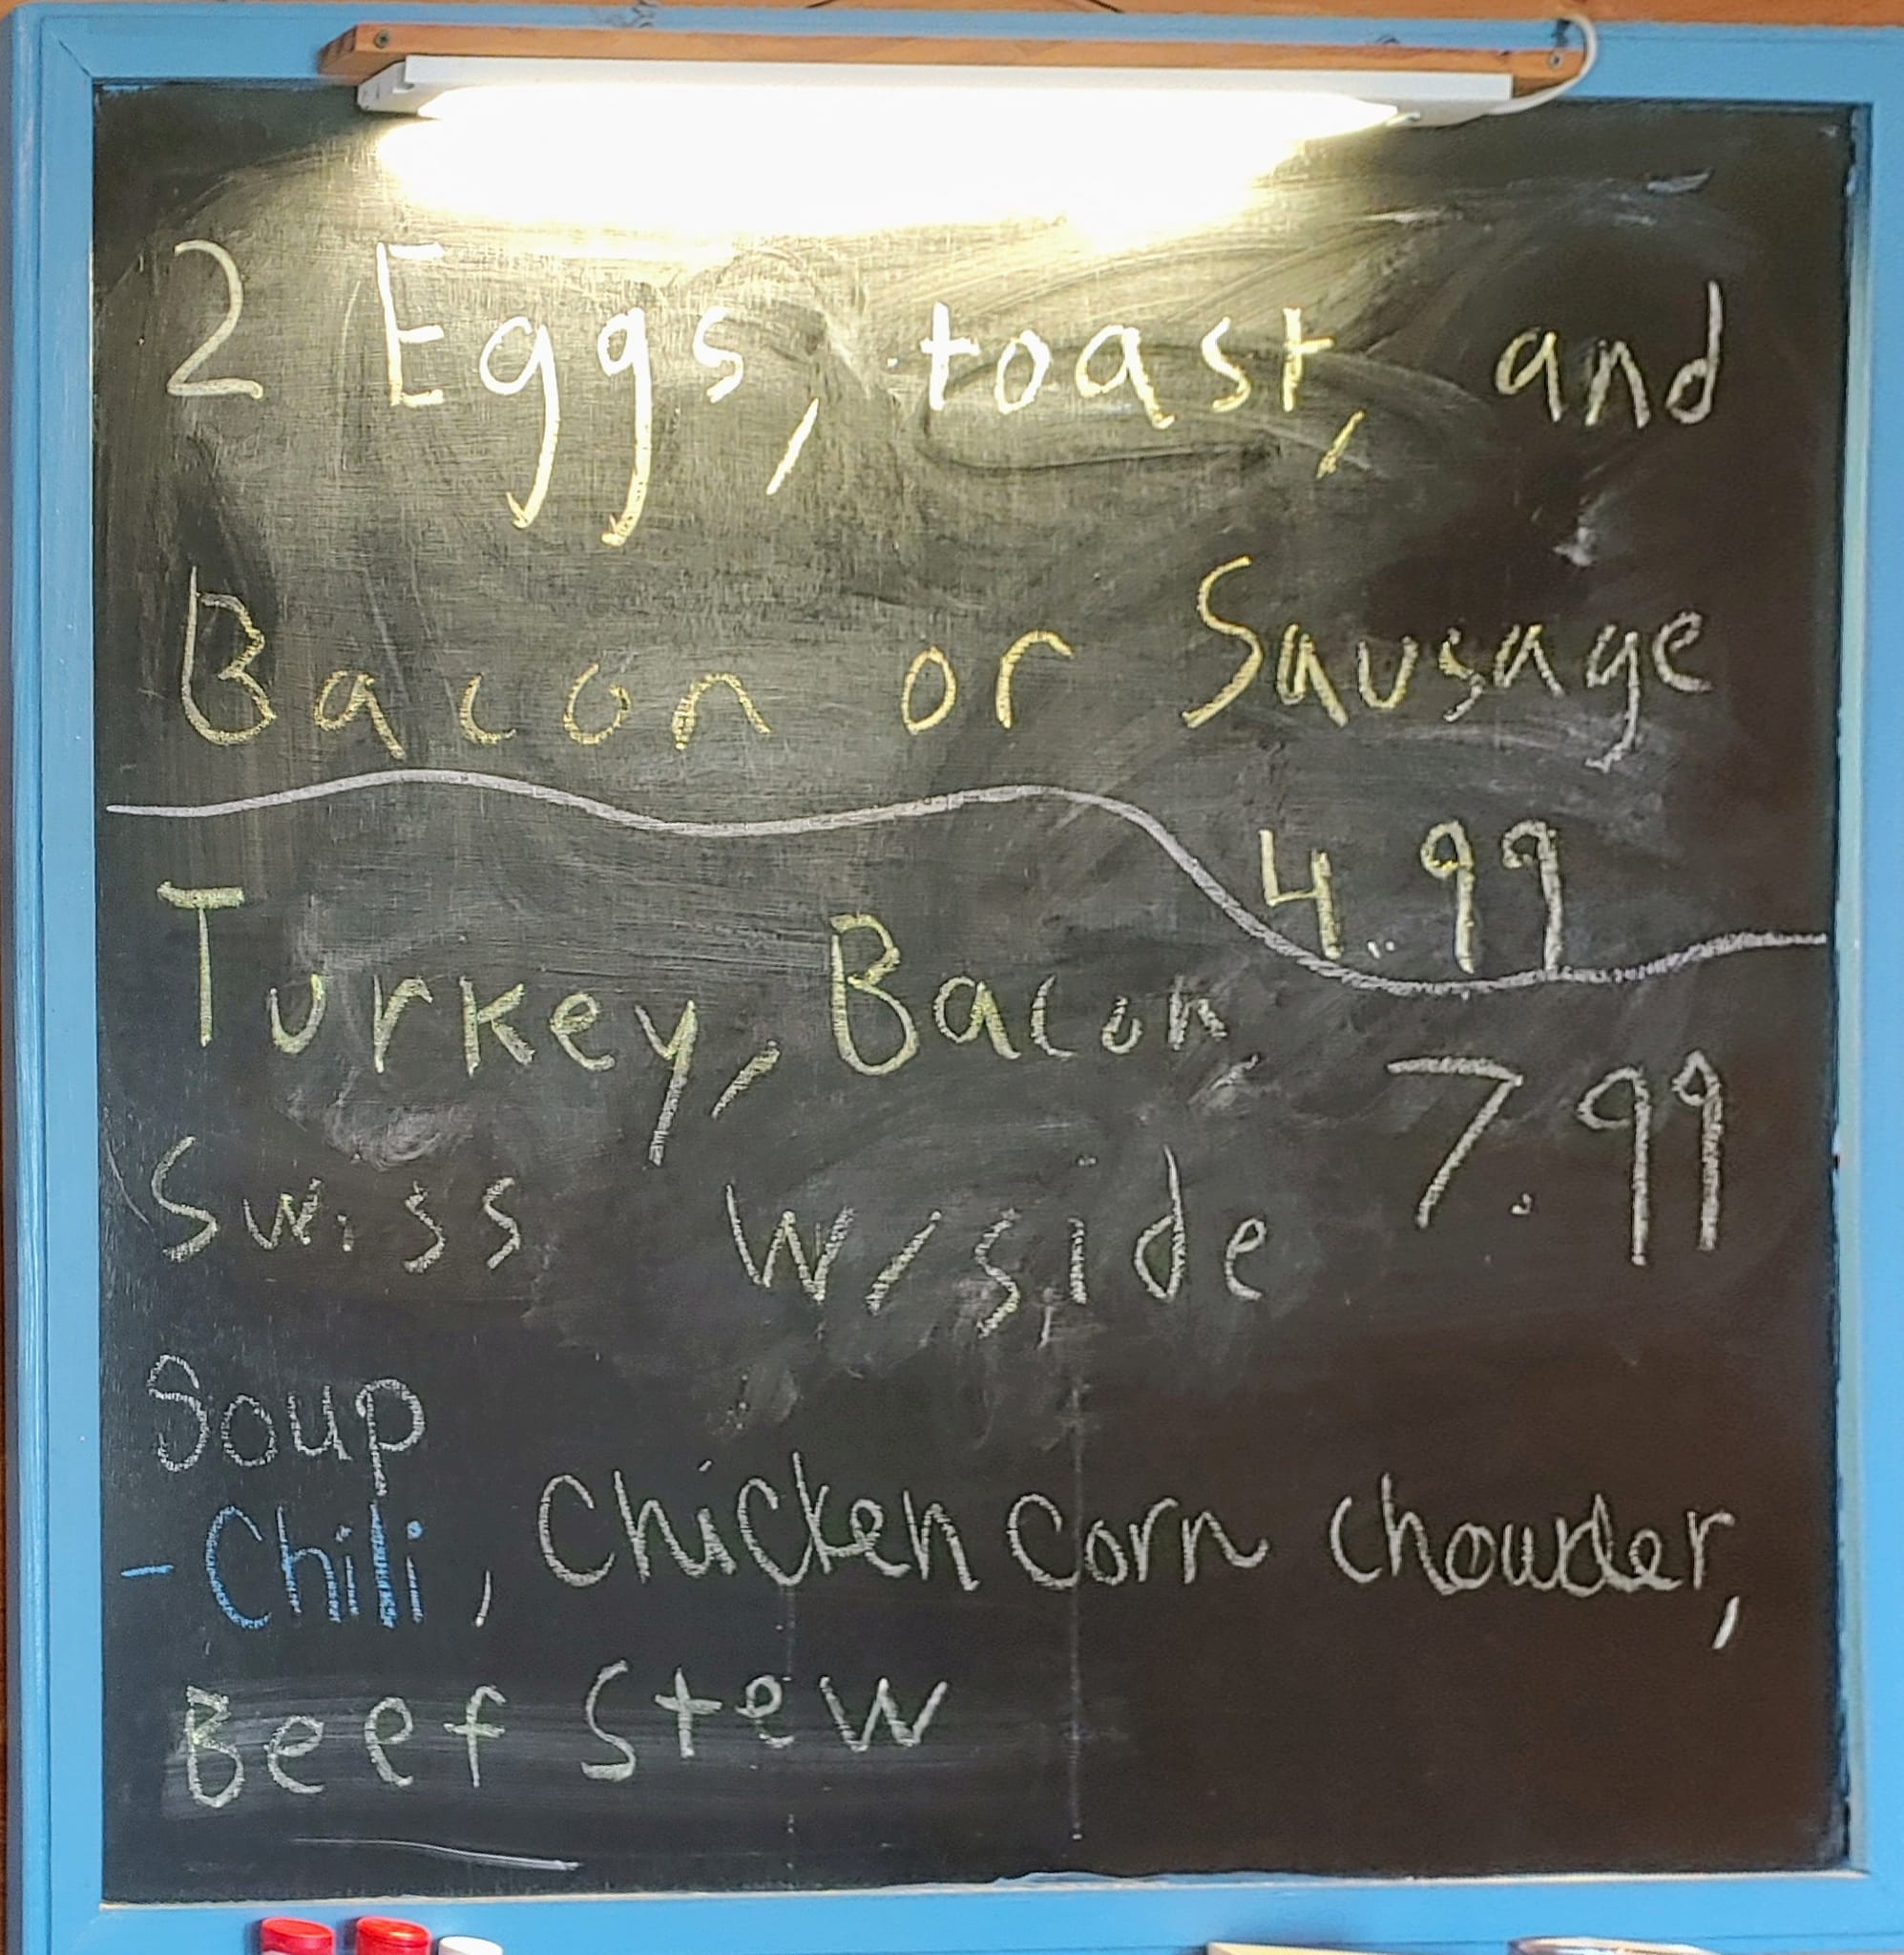 2 Eggs, toast, and
Bacon or Sausage
4.99
Turkey, Bacon,
Swiss w/side 7.99
Soup
- Chili, Chicken corn chowder,
Beef Stew